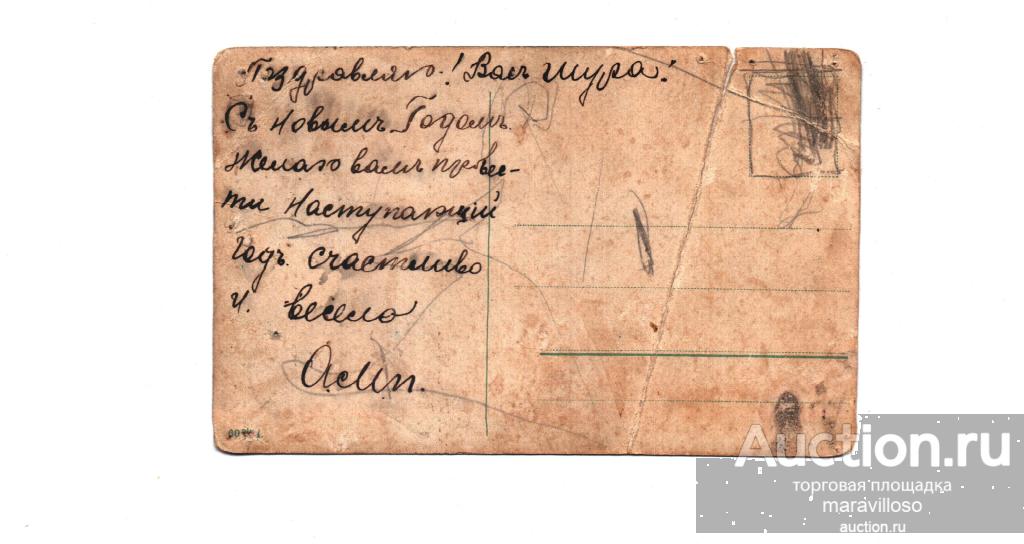 Поздравляю! Васъ Шура!
Съ Новымъ Годомъ.
Желаю вамъ провес-
ти Наступающий
годъ. счастливо
и. весело
Auction.ru
торговая площадка
maravilloso
auction.ru